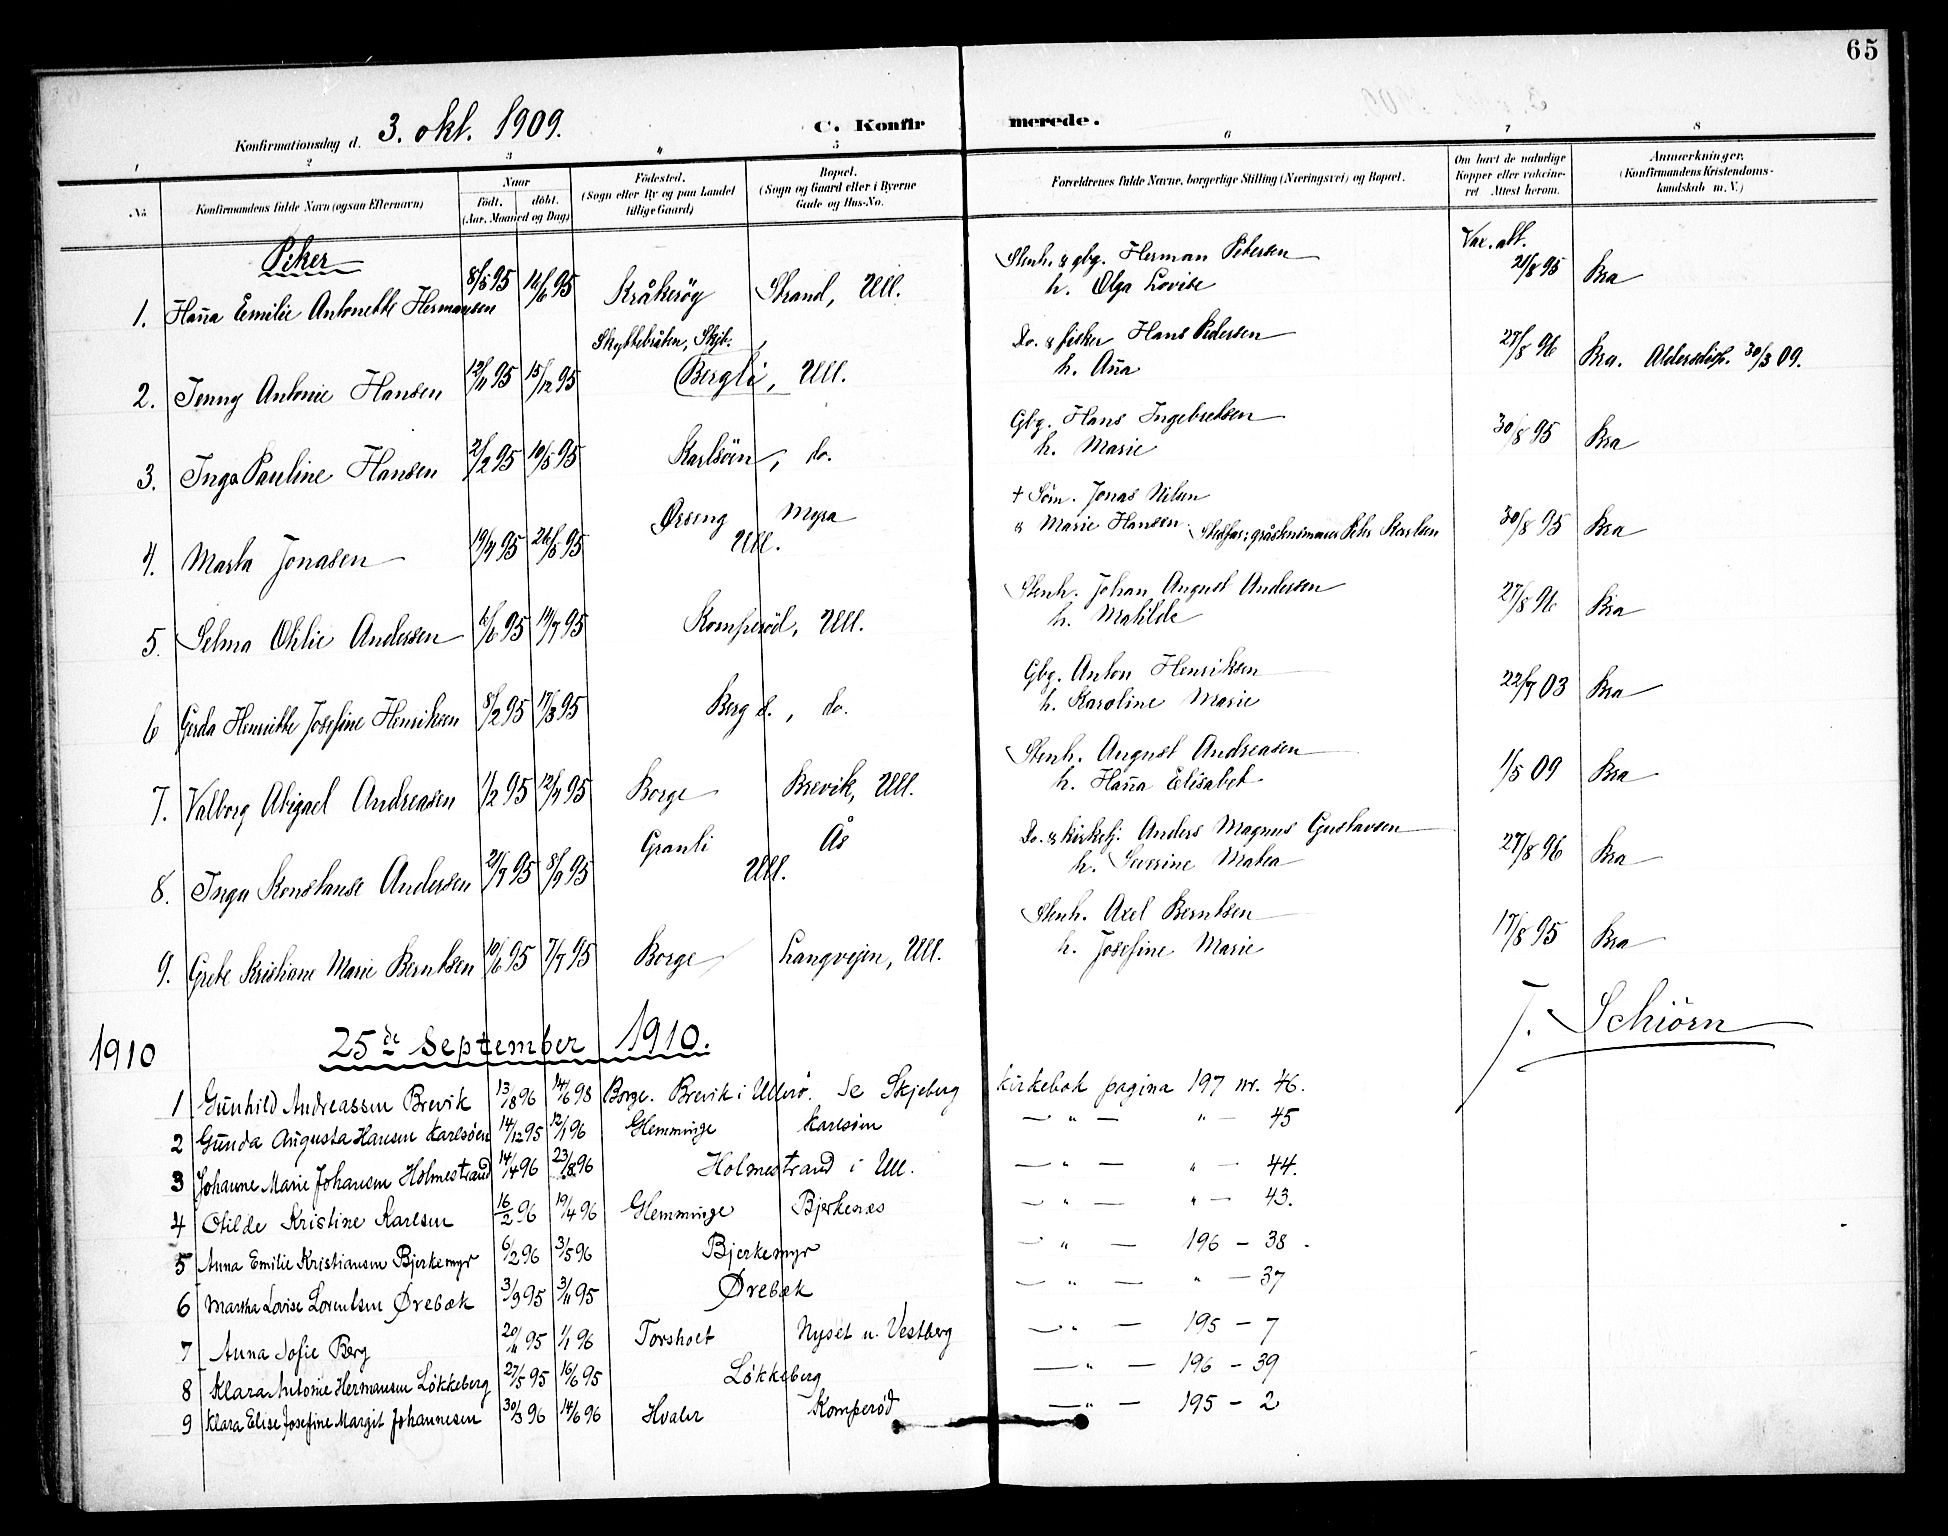 65
Konfirmationsdag d. 3. okt. 1909.
C. Konfirmerede.
1 2 3 4 5 6 7 8
No.
Konfirmandens fulde Navn (ogsaa Efternavn)
Naar
født. døbt.
(Aar, Maaned og Dag)
Fødested.
(Sogn eller By og paa Landet
tillige Gaard)
Bopæl.
(Sogn og Gaard eller i Byerne
Gade og Hus-No.
Forældrenes fulde Navne, borgerlige Stilling (Næringsvei) og Bopæl.
Om havt de naturlige
Kopper eller vakcine-
ret Attest herom.
Anmærkninger.
(Konfirmandens Kristendoms-
kundskab m. V.)
Piker
Vax. att.
1. Hanna Emilie Antonette Hermansen 8/5 95 16/6 95 Kråkerøy Strand, Ull. Stenh. & gbg. Herman Petersen h. Olga Lovise 21/8 95 Bra
2. Jenny Antonie Hansen 12/11 95 15/12 95 Skyttebråten, Skjb. Bergli, Ull. Do. & fisker Hans Pedersen h. Anna 27/8 96 Bra. Aldersdisp. 30/3 09.
3. Inga Pauline Hansen 2/2 95 10/5 95 Karlsöen, do. Gbg. Hans Ingebretsen h. Marie 30/8 95 Bra
4. Marta Jonasen 19/4 95 26/5 95 Ørseng Myra Ull. † Söm. Jonas Nilsen & Marie Hansen Stedfar: gråstensmurer Peter Karlsen 30/8 95 Bra
5. Selma Otilie Andersen 16/6 95 14/7 95 Komperöd, Ull. Stenh. Johan August Andersen h. Matilde 27/8 96 Bra
6 Gerda Henriette Josefine Henriksen 8/2 95 17/3 95 Berg d., do. Gbg. Anton Henriksen h. Karoline Marie 22/7 03 Bra
7. Valborg Abigael Andreasen 1/2 95 12/4 95 Borge Brevik, Ull. Stenh. August Andreasen h. Hanna Elisabet 1/5 09 Bra
8. Inga Konstanse Andersen 21/7 95 8/9 95 Granli Ås Ull. Do. & kirketj. Anders Magnus Gustavsen h. Severine Matea 27/8 96 Bra
9. Grete Kristiane Marie Berntsen 10/6 95 7/7 95 Borge Langvejen, Ull. Stenh. Axel Berntsen h. Josefine Marie 17/8 95 Bra
J. Schiörn
1910 25de September 1910.
1 Gunhild Andreassen Brevik 13/8 96 14/6 98 Borge. Brevik i Ullerö. Se Skjeberg kirkebok pagina 197 nr. 46.
2 Gunda Augusta Hansen Karlsöen 14/12 95 12/1 96 Glemminge Karlsöen — " — " — 45
3 Johanne Marie Johansen Holmestrand 14/4 96 23/8 96 Holmestrand i Ull. — " — " — 44.
4 Otilde Kristine Karlsen 16/2 96 19/4 96 Glemminge Bjerkenæs — " — " — 43.
5 Anna Emilie Kristiansen Bjerkemyr 6/2 96 3/5 96 Bjerkemyr — " — 196 – 38.
6 Martha Lovise Lorentsen Ørebæk 3/9 95 3/11 95 Ørebæk — " — " — 37
7 Anna Sofie Berg 20/11 95 1/1 96 Torsholt Nyset u. Vestberg — " — 195 – 7
8 Klara Antonie Hermansen Lökkeberg 27/5 95 16/6 95 Lökkeberg — " — 196 – 39
9 Klara Elise Josefine Margit Johannesen 30/3 96 14/6 96 Hvaler Komperød — " — 195 – 2